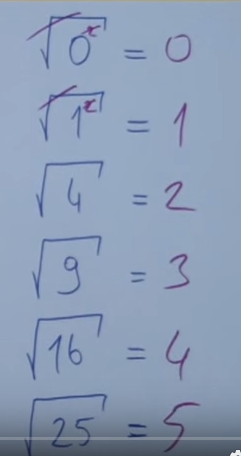 √0² = 0
√1² = 1
√4 = 2
√9 = 3
√16 = 4
√25 = 5